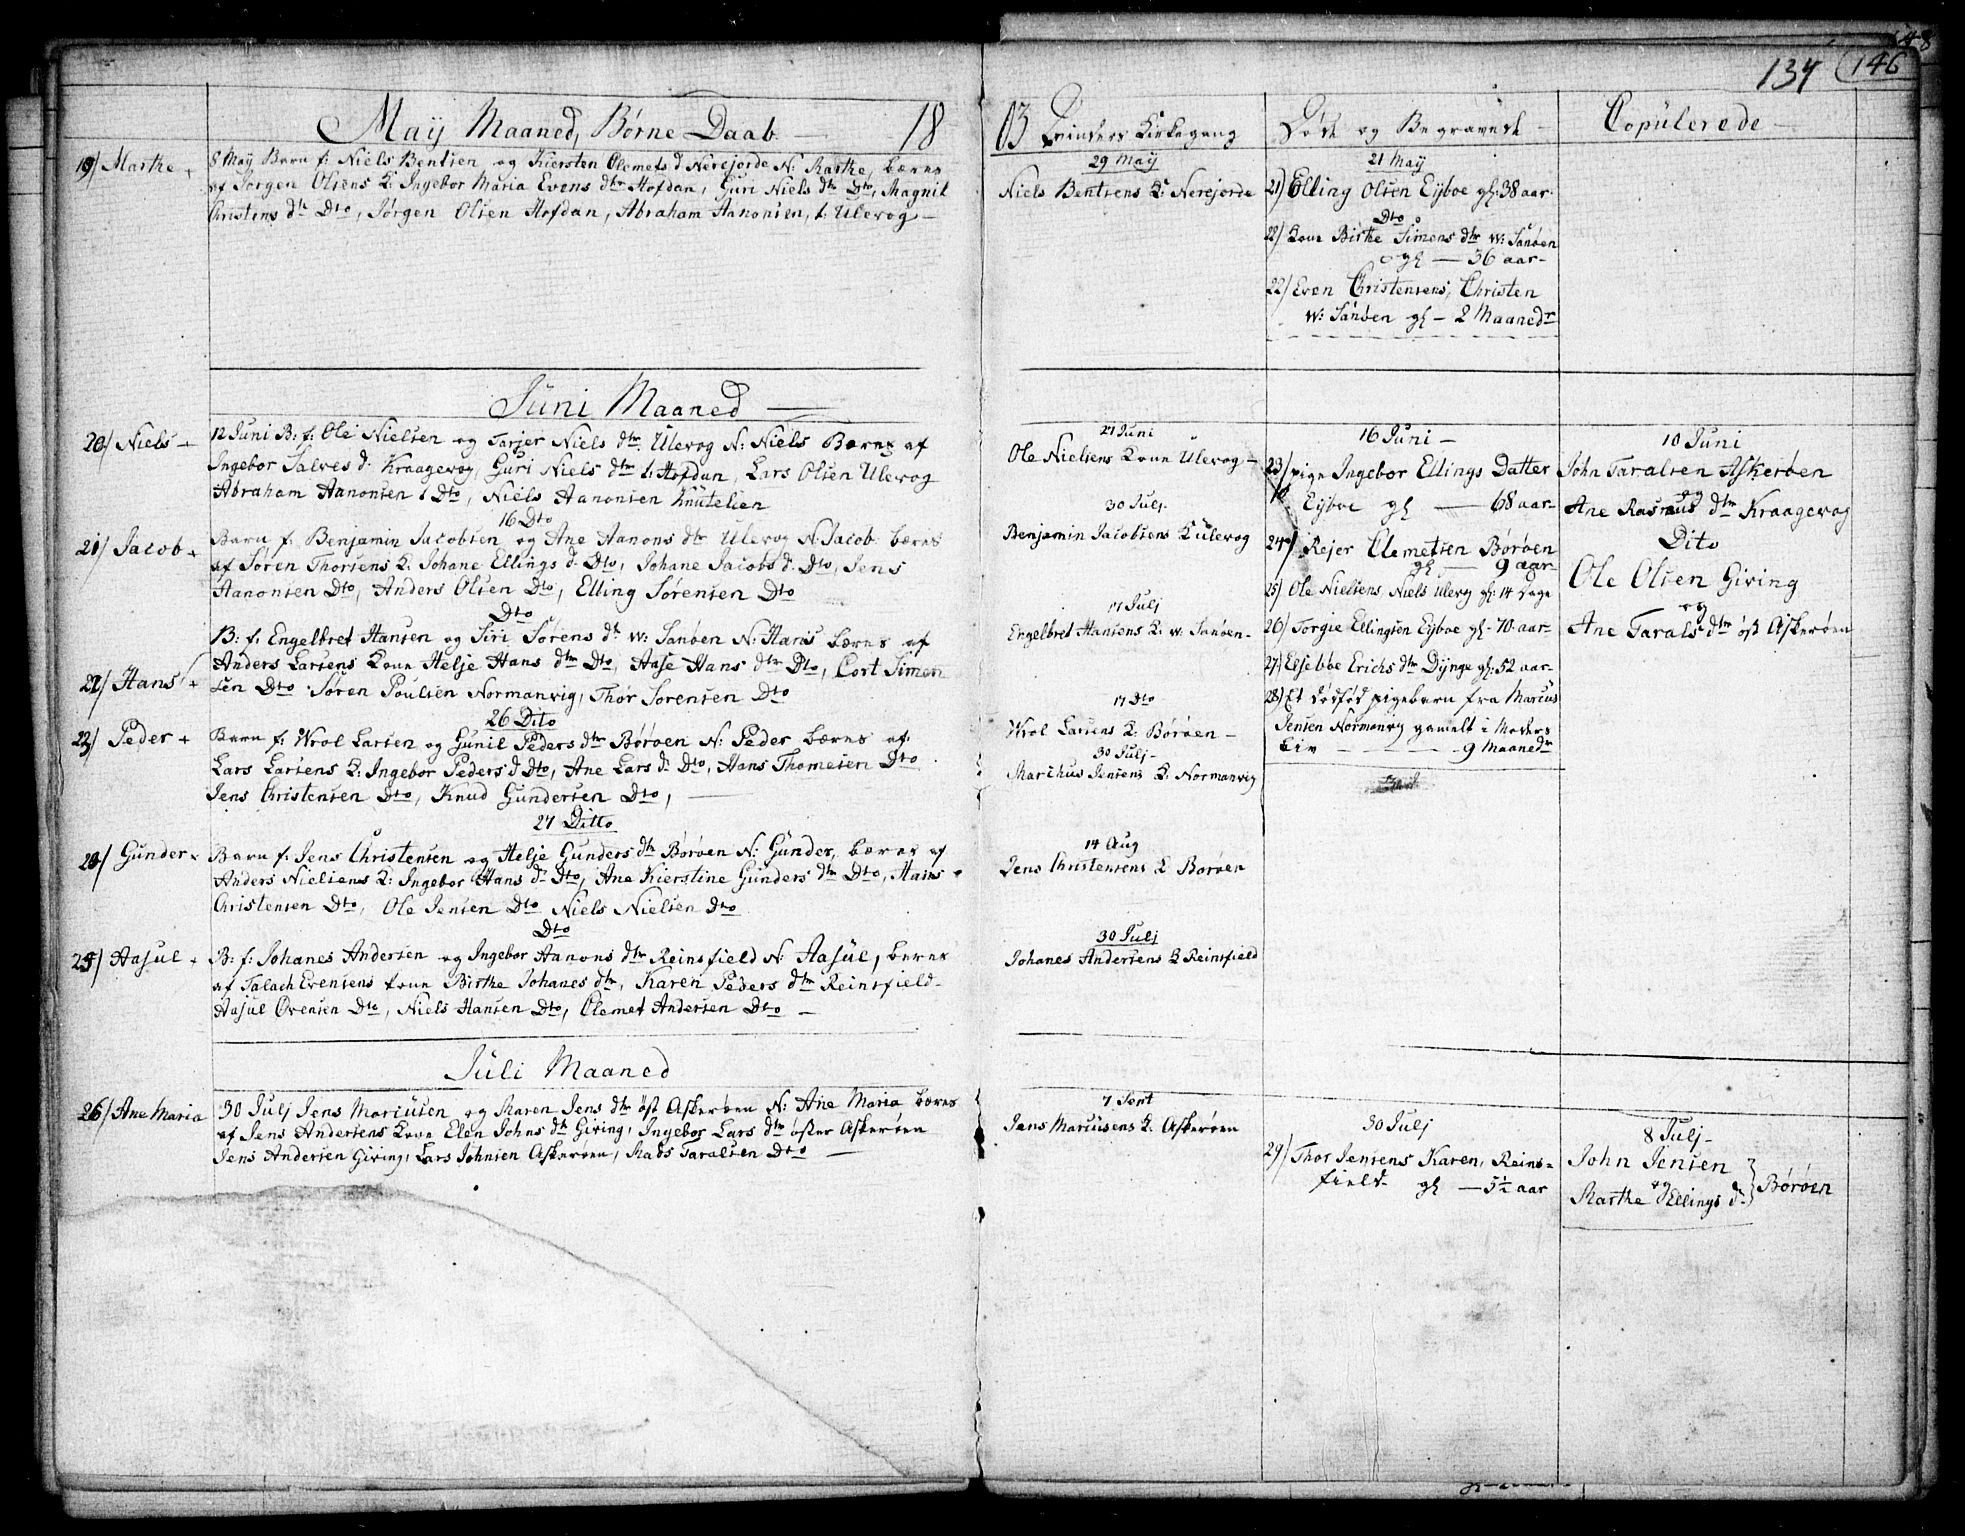 134 146
May Maaned, Børne Daab 18
19/ Marthe
8 May Barn f: Niels Bentsen og Kiersten Clemets d Nerejorde N: Marthe, bæres
af Jørgen Olsens K: Ingebor Maria Evens dtr Hofdan, Guri Niels dtr Dto, Magnil
Christens dtr Dto, Jørgen Olsen Hofdan, Abraham Aanonsen, i: Ulevog
Juni Maaned
20/ Niels
12 Juni B: f: Ole Nielsen og Tarjer Niels dtr Ulevog N: Niels Bæres af
Ingebor Salves d: Kraagevog, Guri Niels dtr i: Hofdan, Lars Olsen Ulevog
Abraham Aanonsen i Dto, Niels Aanonsen Knutelien
16 Dto
21/ Jacob
Barn f: Benjamin Jacobsen og Ane Aanons dtr Ulevog N: Jacob bæres
af Søren Thorsens K: Johane Ellings d: Dto, Johane Jacobs d: Dto, Jens
Aanonsen Dto, Anders Olsen Dto, Elling Sørensen Dto
Dto
22/ Hans
B: f: Engelbret Hansen og Siri Sørens dtr W: Sanøen N: Hans bæres af
Anders Larsens Kone Helje Hans dtr Dto, Aase Hans dtr Dto, Cort Simon
sen Dto Søren Poulsen Normanvig, Thor Sørensen Dto
26 Dito
23/ Peder
Barn f: Wrol Larsen og Gunil Peders dtr Børøen N: Peder bæres af
Lars Larsens K: Ingebor Peders d Dto, Ane Lars d: Dto, Hans Thomesen Dto
Jens Christensen Dto, Knud Gundersen Dto,
27 Ditto
24/ Gunder
Barn f: Jens Christensen og Helje Gunders dtr Børøen N: Gunder, bæres af
Anders Nielsens K: Ingebor Hans d: Dto, Ane Kierstine Gunders dtr Dto, Hans
Christensen Dto, Ole Jensen Dto Niels Nielsen Dto
Dto
25/ Aasul
B: f: Johanes Andersen og Ingebor Aanons dtr Reinsfield N: Aasul, beres
af Salach Evensens kone Birthe Johanes dtr, Karen Peders dtr Reinsfield
Aasul Ovensen Dto, Niels Hansen Dto, Clemet Andersen Dto
Juli Maaned
26/ Ane Maria
30 Julj Jens Marcusen og Maren Jens dtr øst Askerøen N: Ane Maria bæres
af Jens Andersens Kone Elen Johns dtr Giving, Ingebor Lars dtr øster Askerøen
Jens Andersen Giving, Lars Johnsen Askerøen, Mads Taralsen Dto
03 Qvinders Kirkegang
29 May
Niels Bentsens K: Nerejorde
21 Juni
Ole Nielsens Kone Ulevog
30 Julj
Benjamin Jacobsens K Ulevog
17 Julj
Engelbret Hansens K: W: Sanøen
17 Dto
Wrol Larsens K: Børøen
30 Julj
Marchus Jensens K: Normanvig
14 Aug
Jens Christensens K Børøen
30 Julj
Johanes Andersens K Reinsfield
7 Sept
Jens Marcusens K: Askerøen
Døde og Begravede
21 May
21) Elling Olsen Eyboe gl: 38 aar
Dto
22/ Kone Birthe Simons dtr W: Sanøen
gl — 36 aar
22/ Even Christensens, Christen
W: Sanøen gl — 2 Maaneder
16 Juni
23/ pige Ingebor Ellings Datter
Eyboe gl — 68 aar
24/ Rejer Clemetsen Børøen
gl — 9 aar
25) Ole Nielsens Niels Ulevog gl: 14 Dage
26/ Torgie Ellingsen Eyboe gl: 70 aar
27/ Elsebbe Erichs dtr Dynge gl: 52 aar
28) Et dødfød pigebarn fra Marcus
Jensen Normanvig gamelt i Moders
Liv — 9 Maaneder
30 Julj
29/ Thor Jensens Karen, Reins=
field gl — 5½ aar
Copulerede
10 Juni
John Taralsen Askerøen
og
Ane Rasmus dtr Kraagevog
Dito
Ole Olsen Giving
og
Ane Tarals dtr øst Askerøen
8 Julj
John Jensen
og
Marthe Ellings d: } Børøen